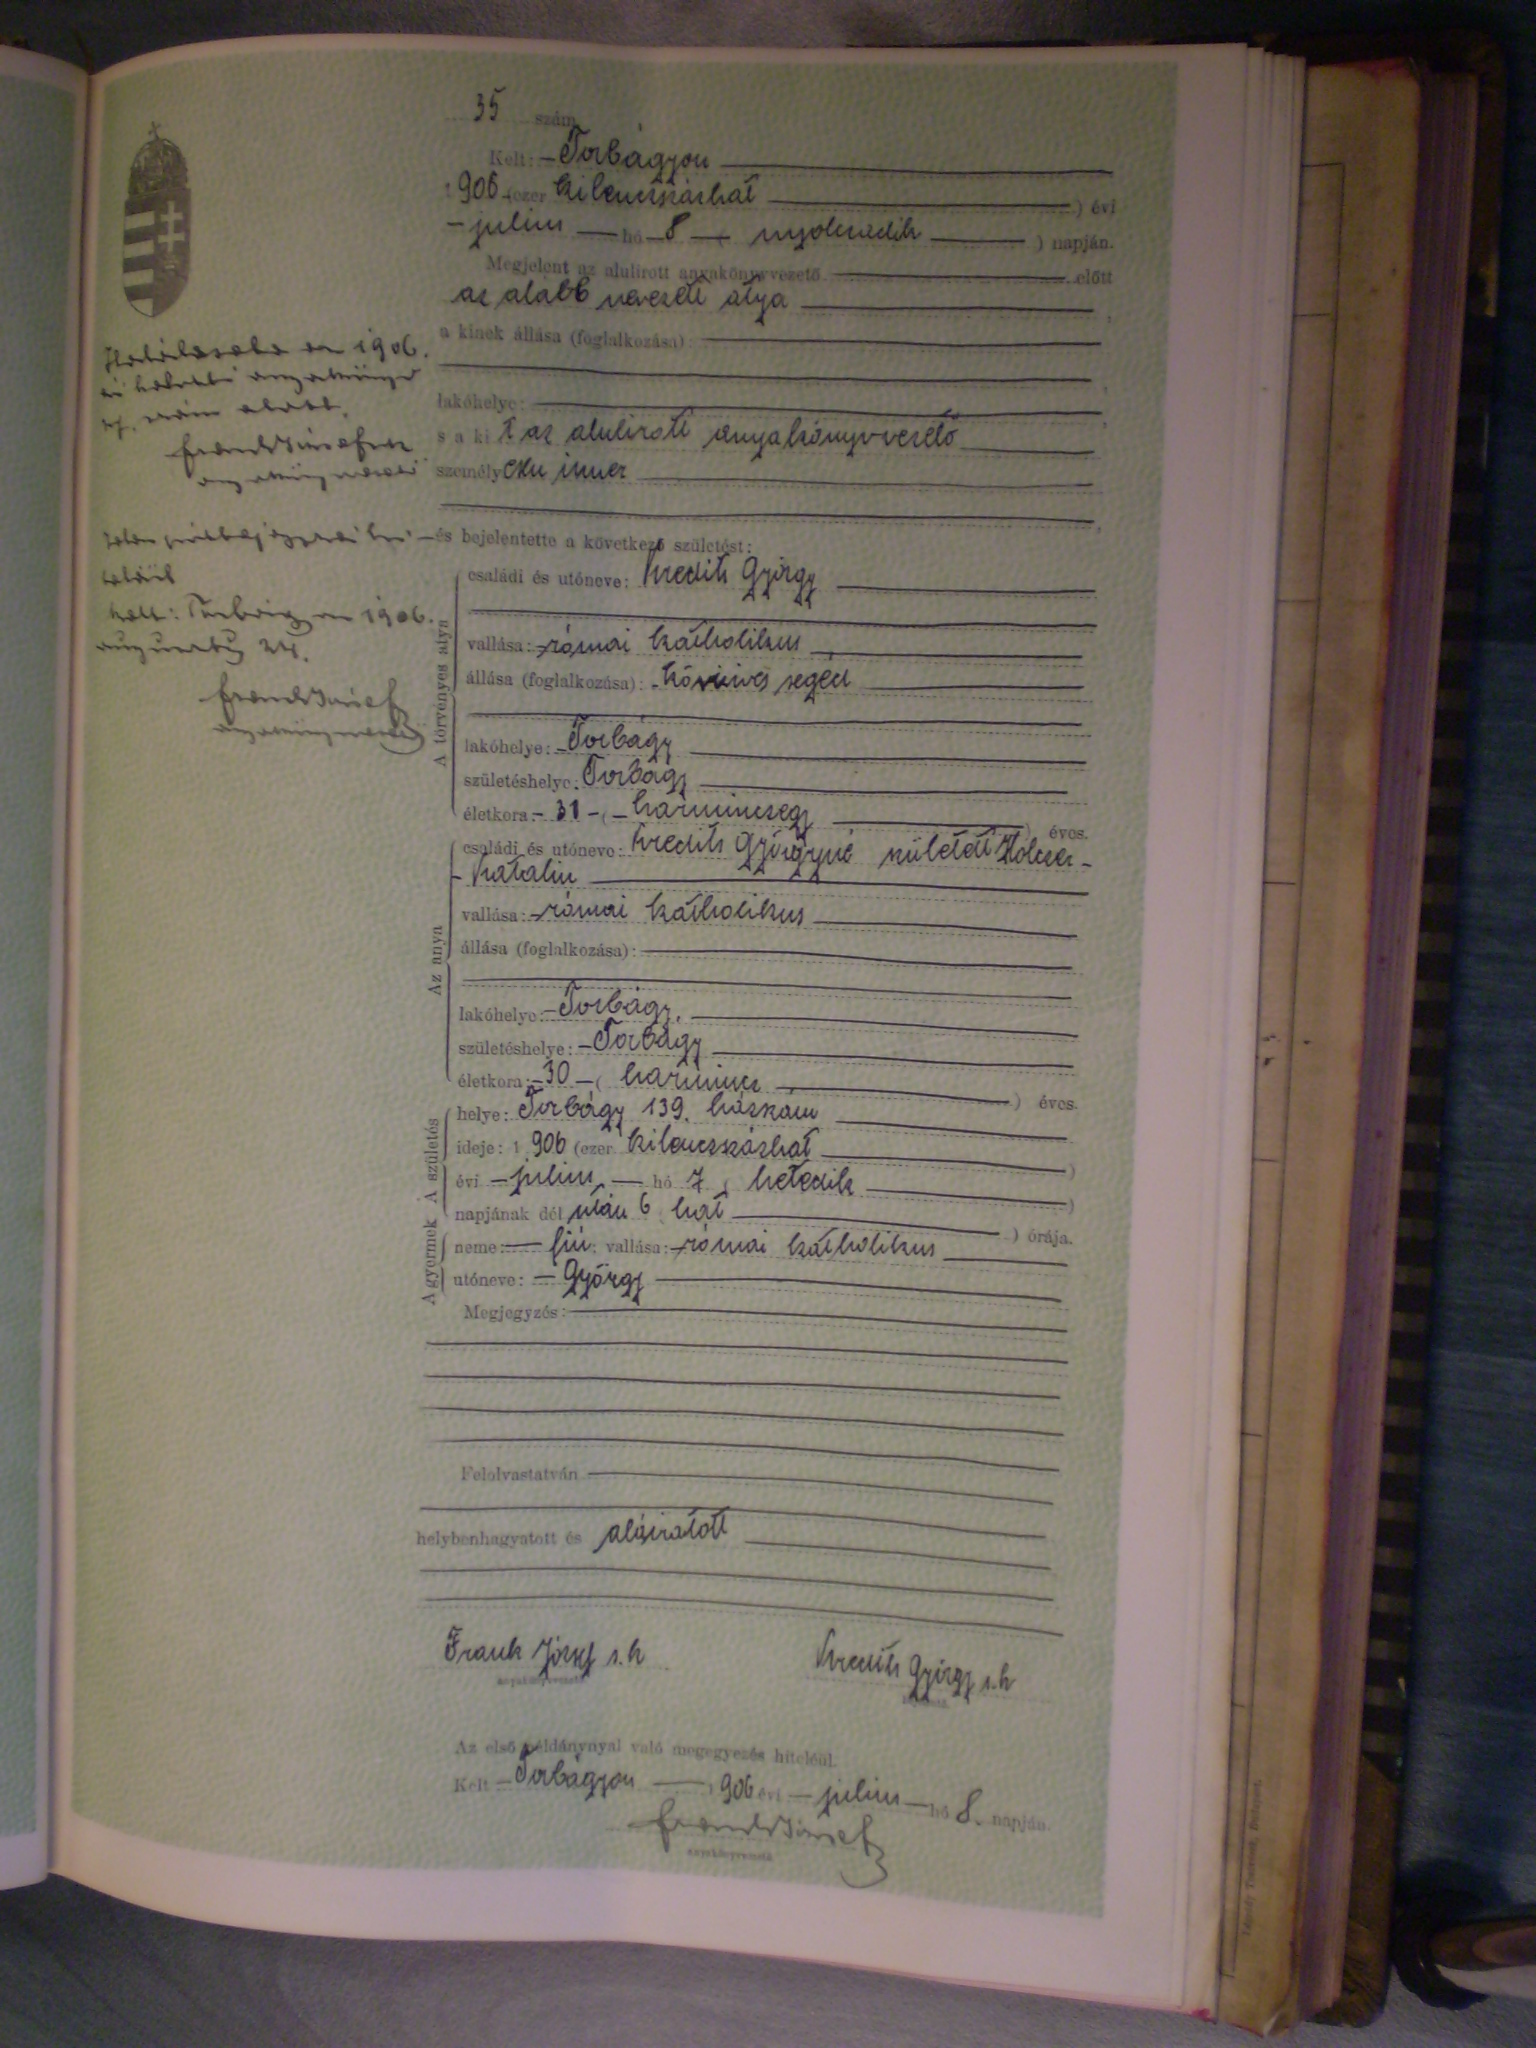 35 szám
Kelt: – Torbágyon
1906 (ezer kilenczszázhat ) évi
– julius — hó – 8 – ( nyolczadik ) napján.
Megjelent az alulirott anyakönyvvezető előtt
az alább nevezett atya
a kinek állása (foglalkozása):
lakóhelye:
s a kit az alulirott anyakönyvvezető
személyesen ismer
és bejelentette a következő születést:
A törvényes atya
családi és utóneve: Kredits György
vallása: – római katholikus
állása (foglalkozása): – kőmives segéd
lakóhelye: – Torbágy
születéshelye: Torbágy
életkora: – 31 – ( – harminczegy ) éves.
Az anya
családi és utóneve: Kredits Györgyné született Holczer –
– Katalin
vallása: – római katholikus
állása (foglalkozása):
lakóhelye: – Torbágy.
születéshelye: – Torbágy
életkora: – 30 – ( harmincz ) éves.
A születés
helye: Torbágy 139. házszám
ideje: 1906 (ezer kilenczszázhat )
évi – julius, — hó 7 ( hetedik )
napjának dél után 6 ( hat ) órája.
A gyermek
neme: — fiú; vallása: – római katholikus
utóneve: – György
Megjegyzés:
Felolvastatván
helybenhagyatott és aláiratott
Frank József s. k
anyakönyvvezető
Kredits György s. k
Az első példánynyal való megegyezés hiteléül.
Kelt – Torbágyon — 1906 évi – julius – hó 8. napján.
Frank József
anyakönyvvezető
1906.
anyakönyv
szám alatt.
Frank József
anyakönyvvezető
Kelt: Torbágyon 1906.
augusztus 24.
Frank József
anyakönyvvezető